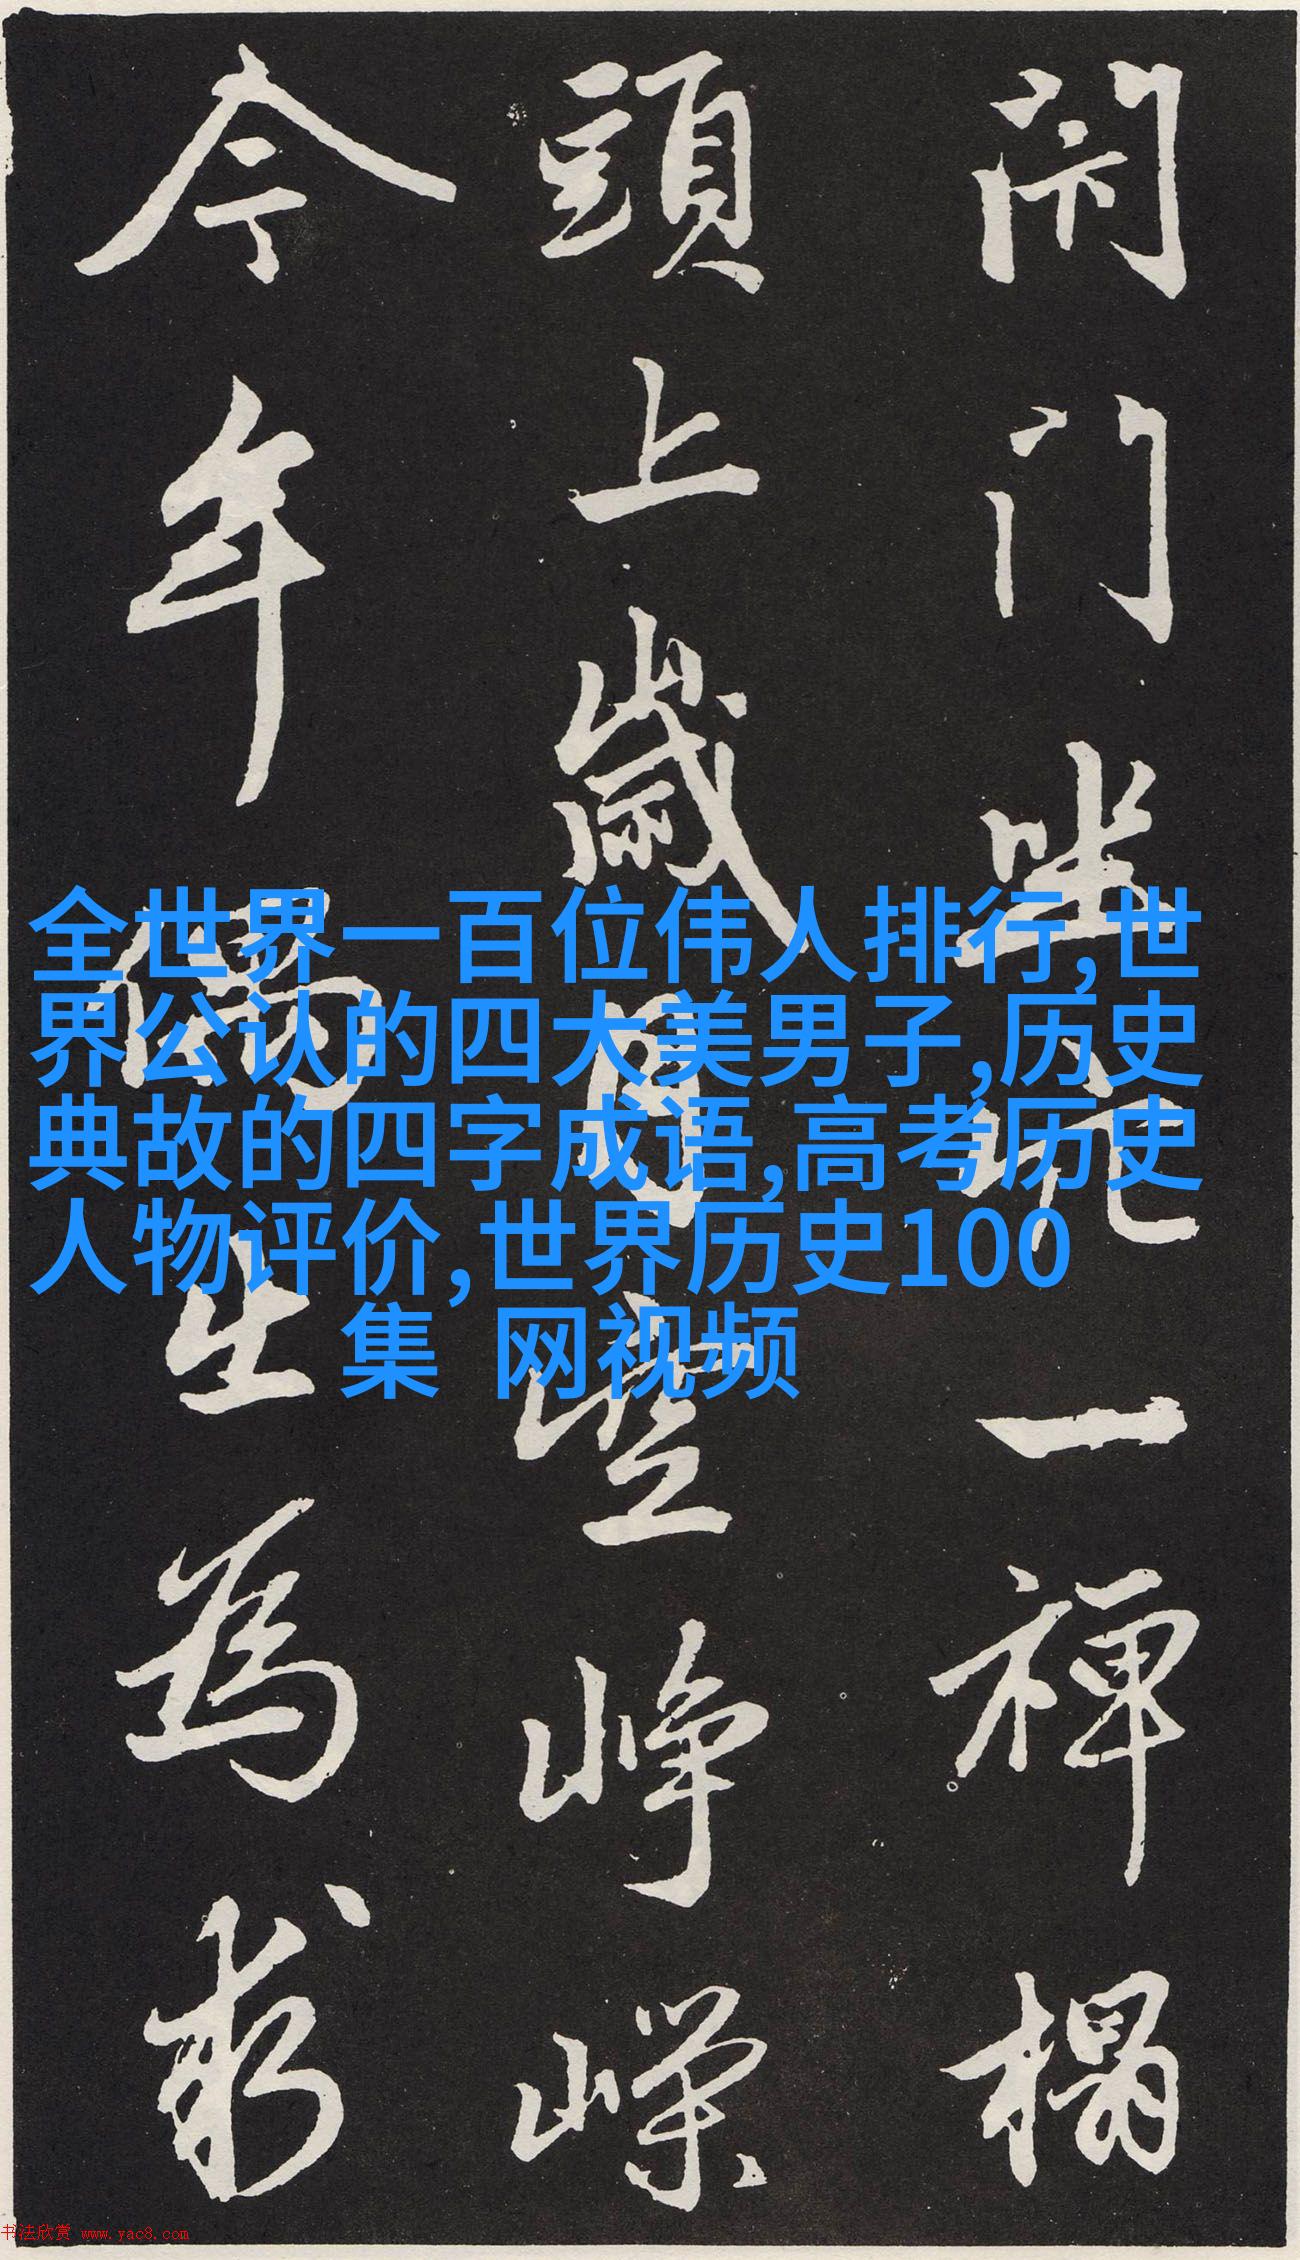 闭门坐穴一禅榻
頭上歲月空崢嶸
今年偶出為求
全世界一百位伟人排行,世
界公认的四大美男子,历史
典故的四字成语,高考历史
人物评价,世界历史100
集 网视频
书法欣赏 www.yac8.com